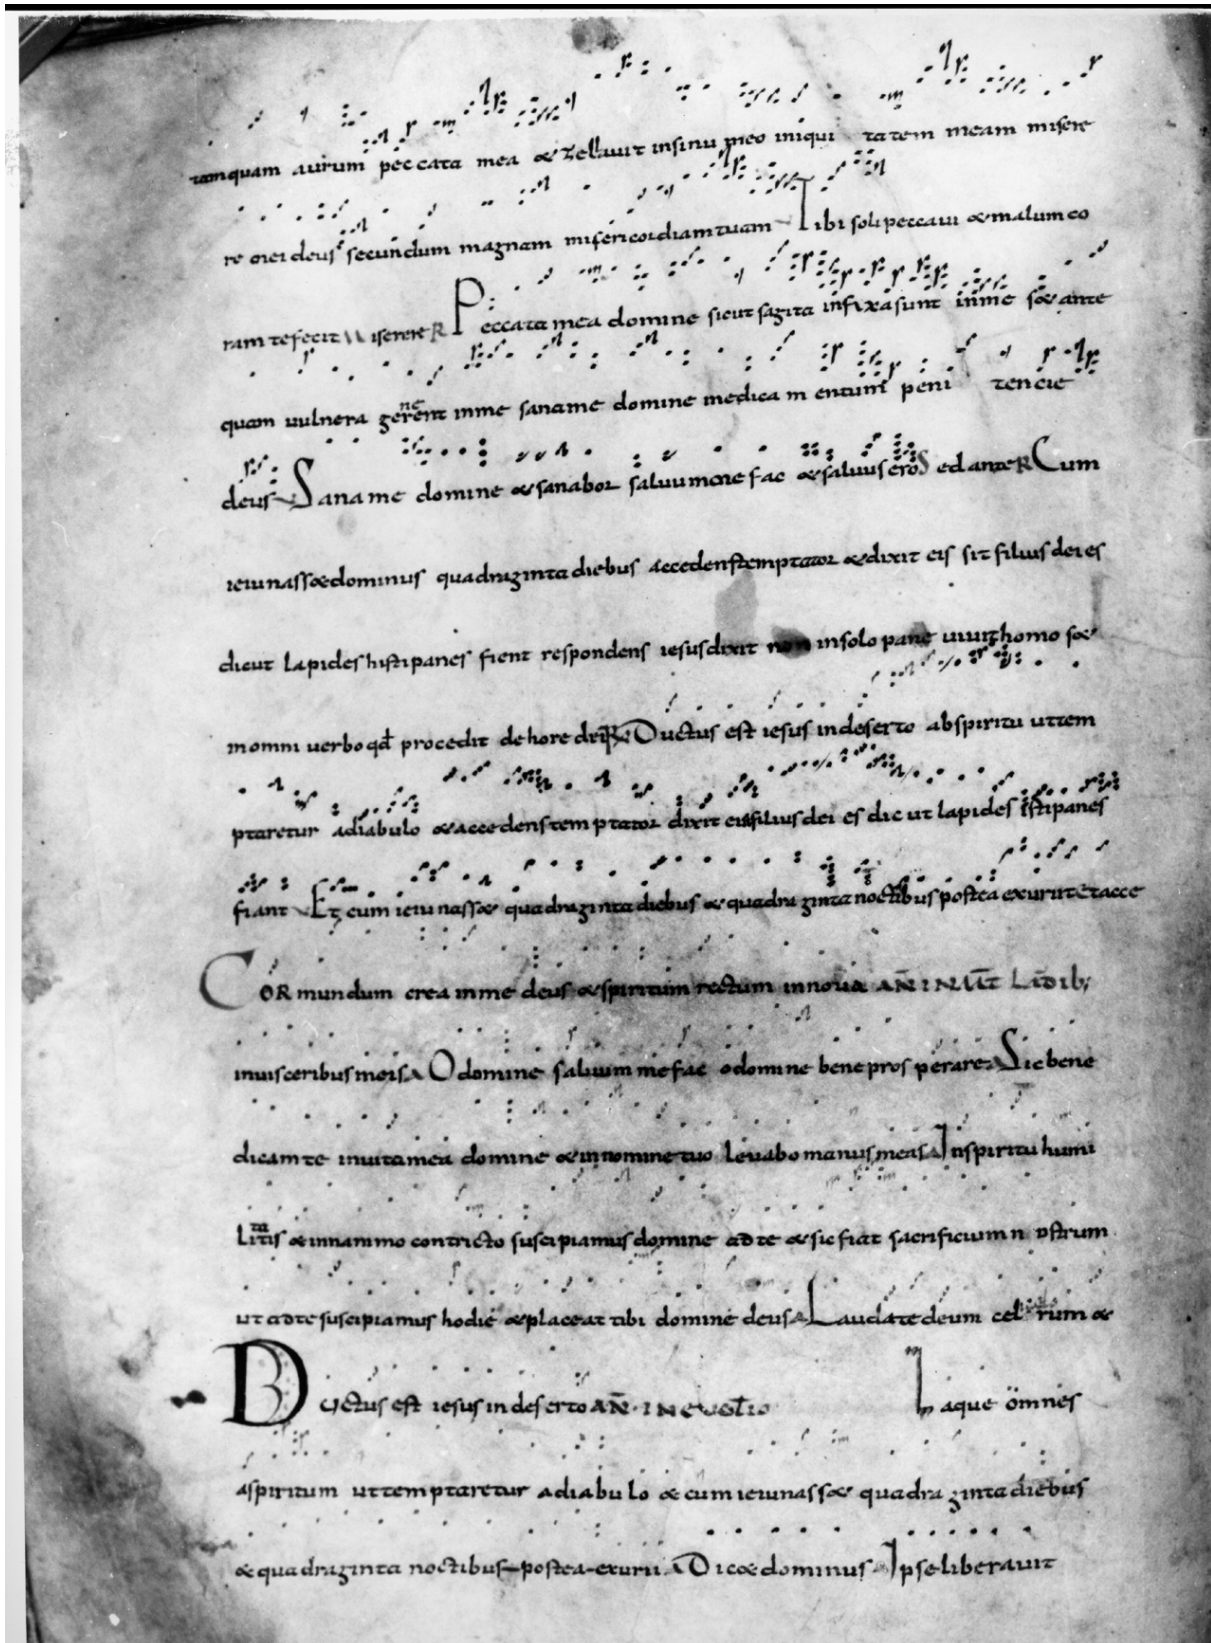 tamquam aurum peccata mea & zellavit insinu meo iniqui tatem meam misere
re mei deus secundum magnam misericordiamtuam Tibi soli peccavi & malum co
ram te fecit Miserere R Peccata mea domine sicut sagita infixa sunt inme s& ante
quam vulnera generent inme saname domine medica m entum peni tencie
deus Saname domine & sanabor salvum me fac & salvus ero Sed ante R Cum
ieiunass& dominus quadraginta diebus accedens temptator & dixit eis sit filius dei es
dicut lapides histi panes fient respondens iesus dixit non insolo pane vivit homo s&
inomni verbo qd procedit de hore dni R Ductus est iesus indeserto abspiritu uttem
ptaretur adiabulo & accedens tem ptator dixit ei si filius dei es dic ut lapides isti panes
fiant Et cum ieiunass& quadraginta diebus & quadra ginta noctibus postea exuriit et acce
COR mundum crea inme deus & spiritum rectum innova AN IN LAUDIB;
invisceribus meis O domine salvum me fac o domine bene pros perare Sic bene
dicam te invita mea domine & innomine tuo levabo manus meas Inspiritu humi
litatis & innanimo contricto suscipiamus domine ad te & sic fiat sacrificium n ostrum
ut ad te suscipiamus hodie & placeat tibi domine deus Laudate deum cel rum &
Ductus est iesus in deserto AN. IN EVGLIO aque omnes
aspiritum ut tem ptaretur adiabulo & cum ieiunass& quadra ginta diebus
& quadraginta noctibus postea exurii Dic& dominus Ipse liberavit